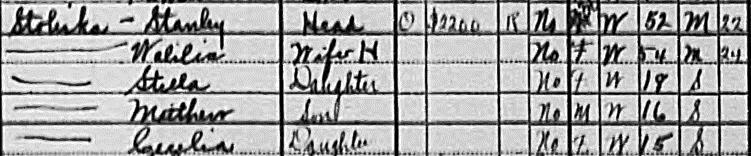 Stoluka - Stanley Head O $2200 R No M W 52 M 22
Walilia Wife H No F W 54 M 24
Stella Daughter No F W 18 S
Matthew Son No M W 16 S
Cecelia Daughter No F W 15 S